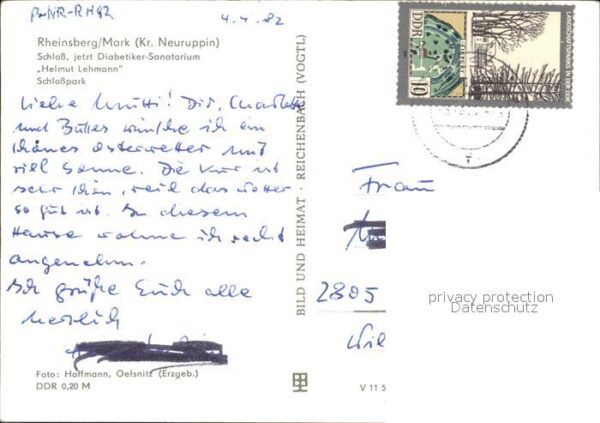 P-NR-RH82
4.4.82
Rheinsberg/Mark (Kr. Neuruppin)
Schloß, jetzt Diabetiker-Sanatorium
„Helmut Lehmann"
Schloßpark
Liebe Mutti! Dir,
und wünsche ich ein
schönes Osterwetter und
viel Sonne. Die Kur ist
sehr schön, weil das Wetter
so gut ist. In diesem
Hause wohne ich recht
angenehm.
Ich grüße Euch alle
herzlich
Foto: Hoffmann, Oelsnitz (Erzgeb.)
DDR 0,20 M
BILD UND HEIMAT · REICHENBACH (VOGTL)
V 11 5
DDR
10
LANDSCHAFTSPARKS IN DER DDR
Frau
2805
privacy protection
Datenschutz